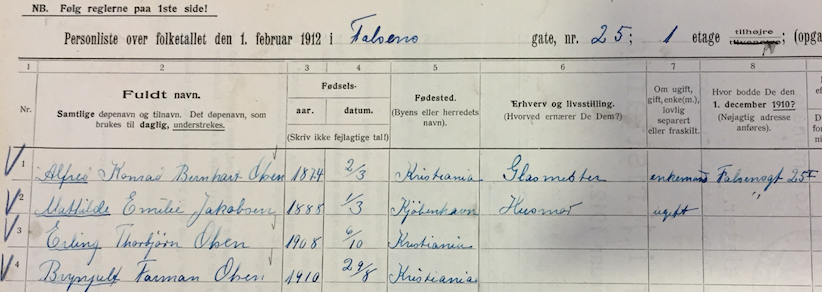 NB. Følg reglerne paa 1ste side!
Personliste over folketallet den 1. februar 1912 i Falsens gate, nr. 25; 1 etage tilhøjre tilvenstre; (opga
1 2 3 4 5 6 7 8
Nr.
Fuldt navn.
Samtlige døpenavn og tilnavn. Det døpenavn, som brukes til daglig, understrekes.
Fødsels-
aar. datum.
(Skriv ikke feilagtige tal!)
Fødested.
(Byens eller herredets navn).
Erhverv og livsstilling.
(Hvorved ernærer De Dem?)
Om ugift, gift, enke(m.), lovlig separert eller fraskilt.
Hvor bodde De den 1. december 1910?
(Nøjagtig adresse anføres).
1 Alfred Konrad Bernhart Olsen 1874 2/3 Kristiania Glasmester enkemand Falsensgt 25 I
2 Mathilde Emilie Jakobsen 1888 1/3 Kjøbenhavn Husmor ugift "
3 Erling Thorbjørn Olsen 1908 6/10 Kristiania
4 Brynjulf Farman Olsen 1910 29/8 Kristiania